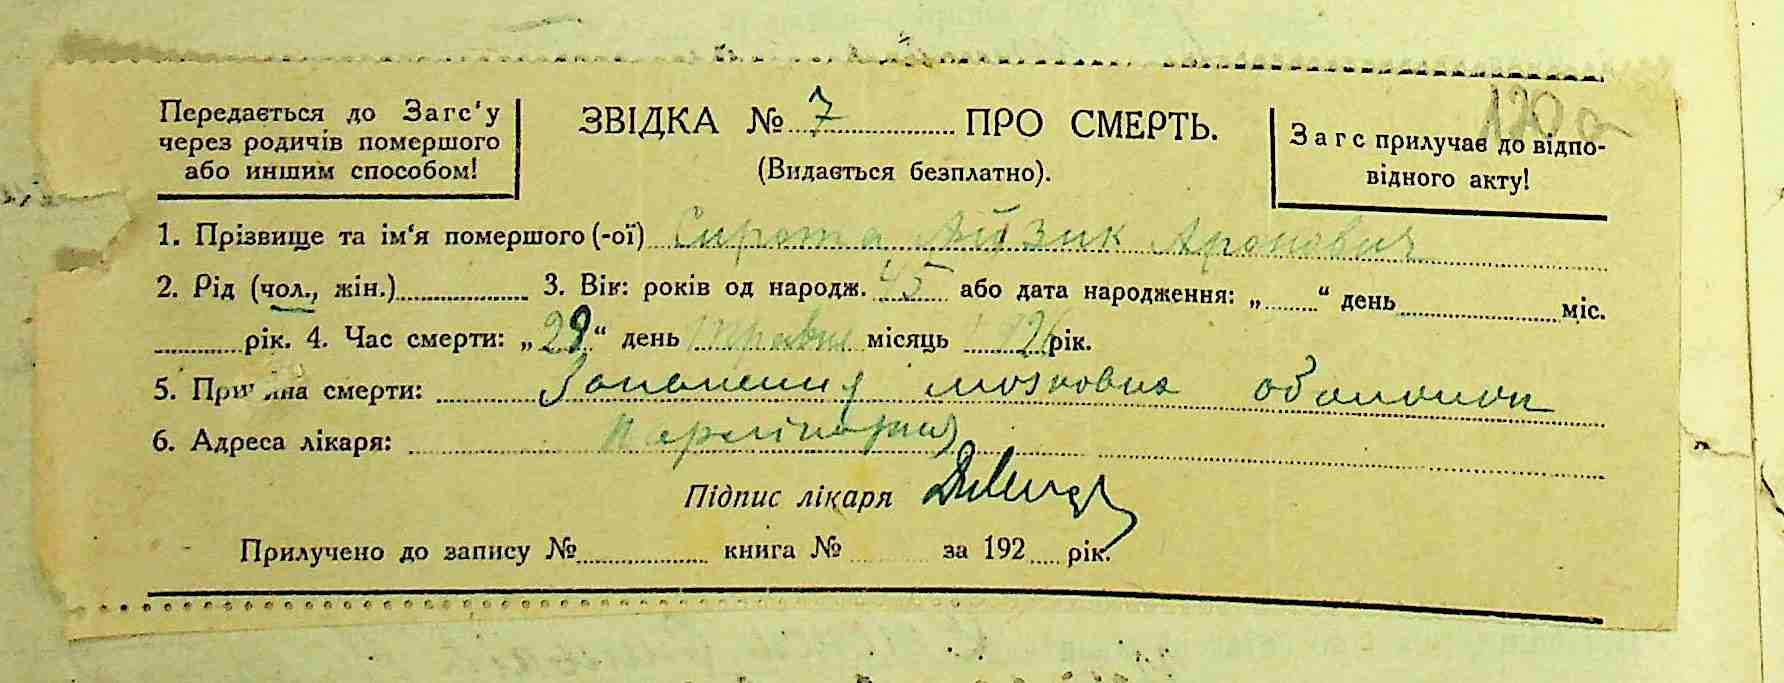 120
Передається до Загс'у
через родичів помершого
або иншим способом!
ЗВІДКА № 7 ПРО СМЕРТЬ.
(Видається безплатно).
Загс прилучає до відпо-
відного акту!
1. Прізвище та ім'я помершого (-ої) Сирота Айзик Аронович
2. Рід (чол., жін.) 3. Вік: років од народж. 45 або дата народження: „ “ день міс.
рік. 4. Час смерти: „29“ день травня місяць 1926 рік.
5. Причина смерти: Запалення мозкових оболонок
6. Адреса лікаря:
Підпис лікаря
Прилучено до запису № книга № за 192 рік.